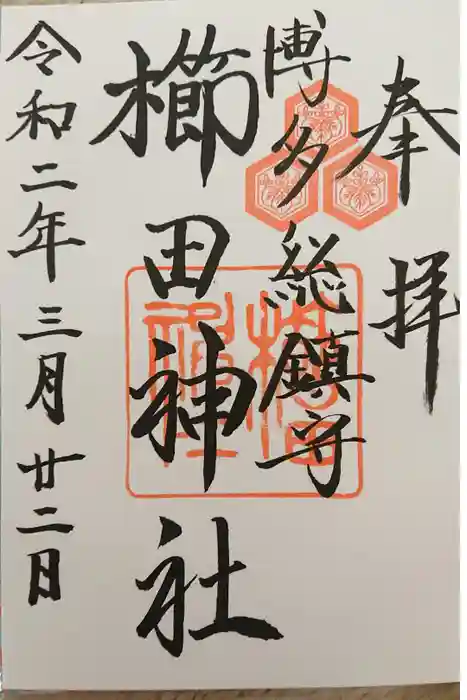 奉拝
博多総鎮守
櫛田神社
令和二年三月廿二日